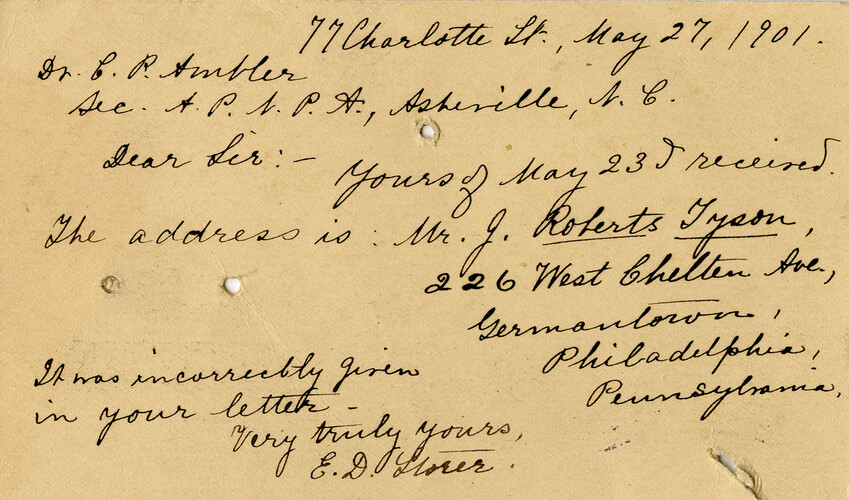 77 Charlotte St., May 27, 1901.
Dr. C. P. Ambler
Sec. A. P. N. P. A., Asheville, N. C.
Dear Sir:-
Yours of May 23d received.
The address is: Mr. J. Roberts Tyson,
226 West Chelten Ave.,
Germantown,
Philadelphia,
Pennsylvania.
It was incorrectly given
in your letter -
Very truly yours,
E. D. Storer.